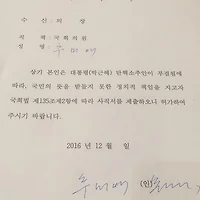 수 신 : 의 장
직 책 : 국회의원
성 명 : 추 미 애
상기 본인은 대통령(박근혜) 탄핵소추안이 부결됨에
따라, 국민의 뜻을 받들지 못한 정치적 책임을 지고자
국회법 제135조제2항에 따라 사직서를 제출하오니 허가하여
주시기 바랍니다.
2016 년 12 월 일
추 미 애 (인)